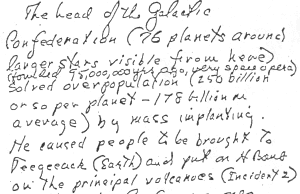 The head of the Galactic
Confederation (76 planets around
larger stars visible from here)
(founded 95,000,000 yrs ago, very space opera)
solved overpopulation (250 billion
or so per planet – 178 billion
average) by mass implanting.
He caused people to be brought to
Teegeeack (Earth) and put an H Bomb
on the principal volcanoes (Incident 2)